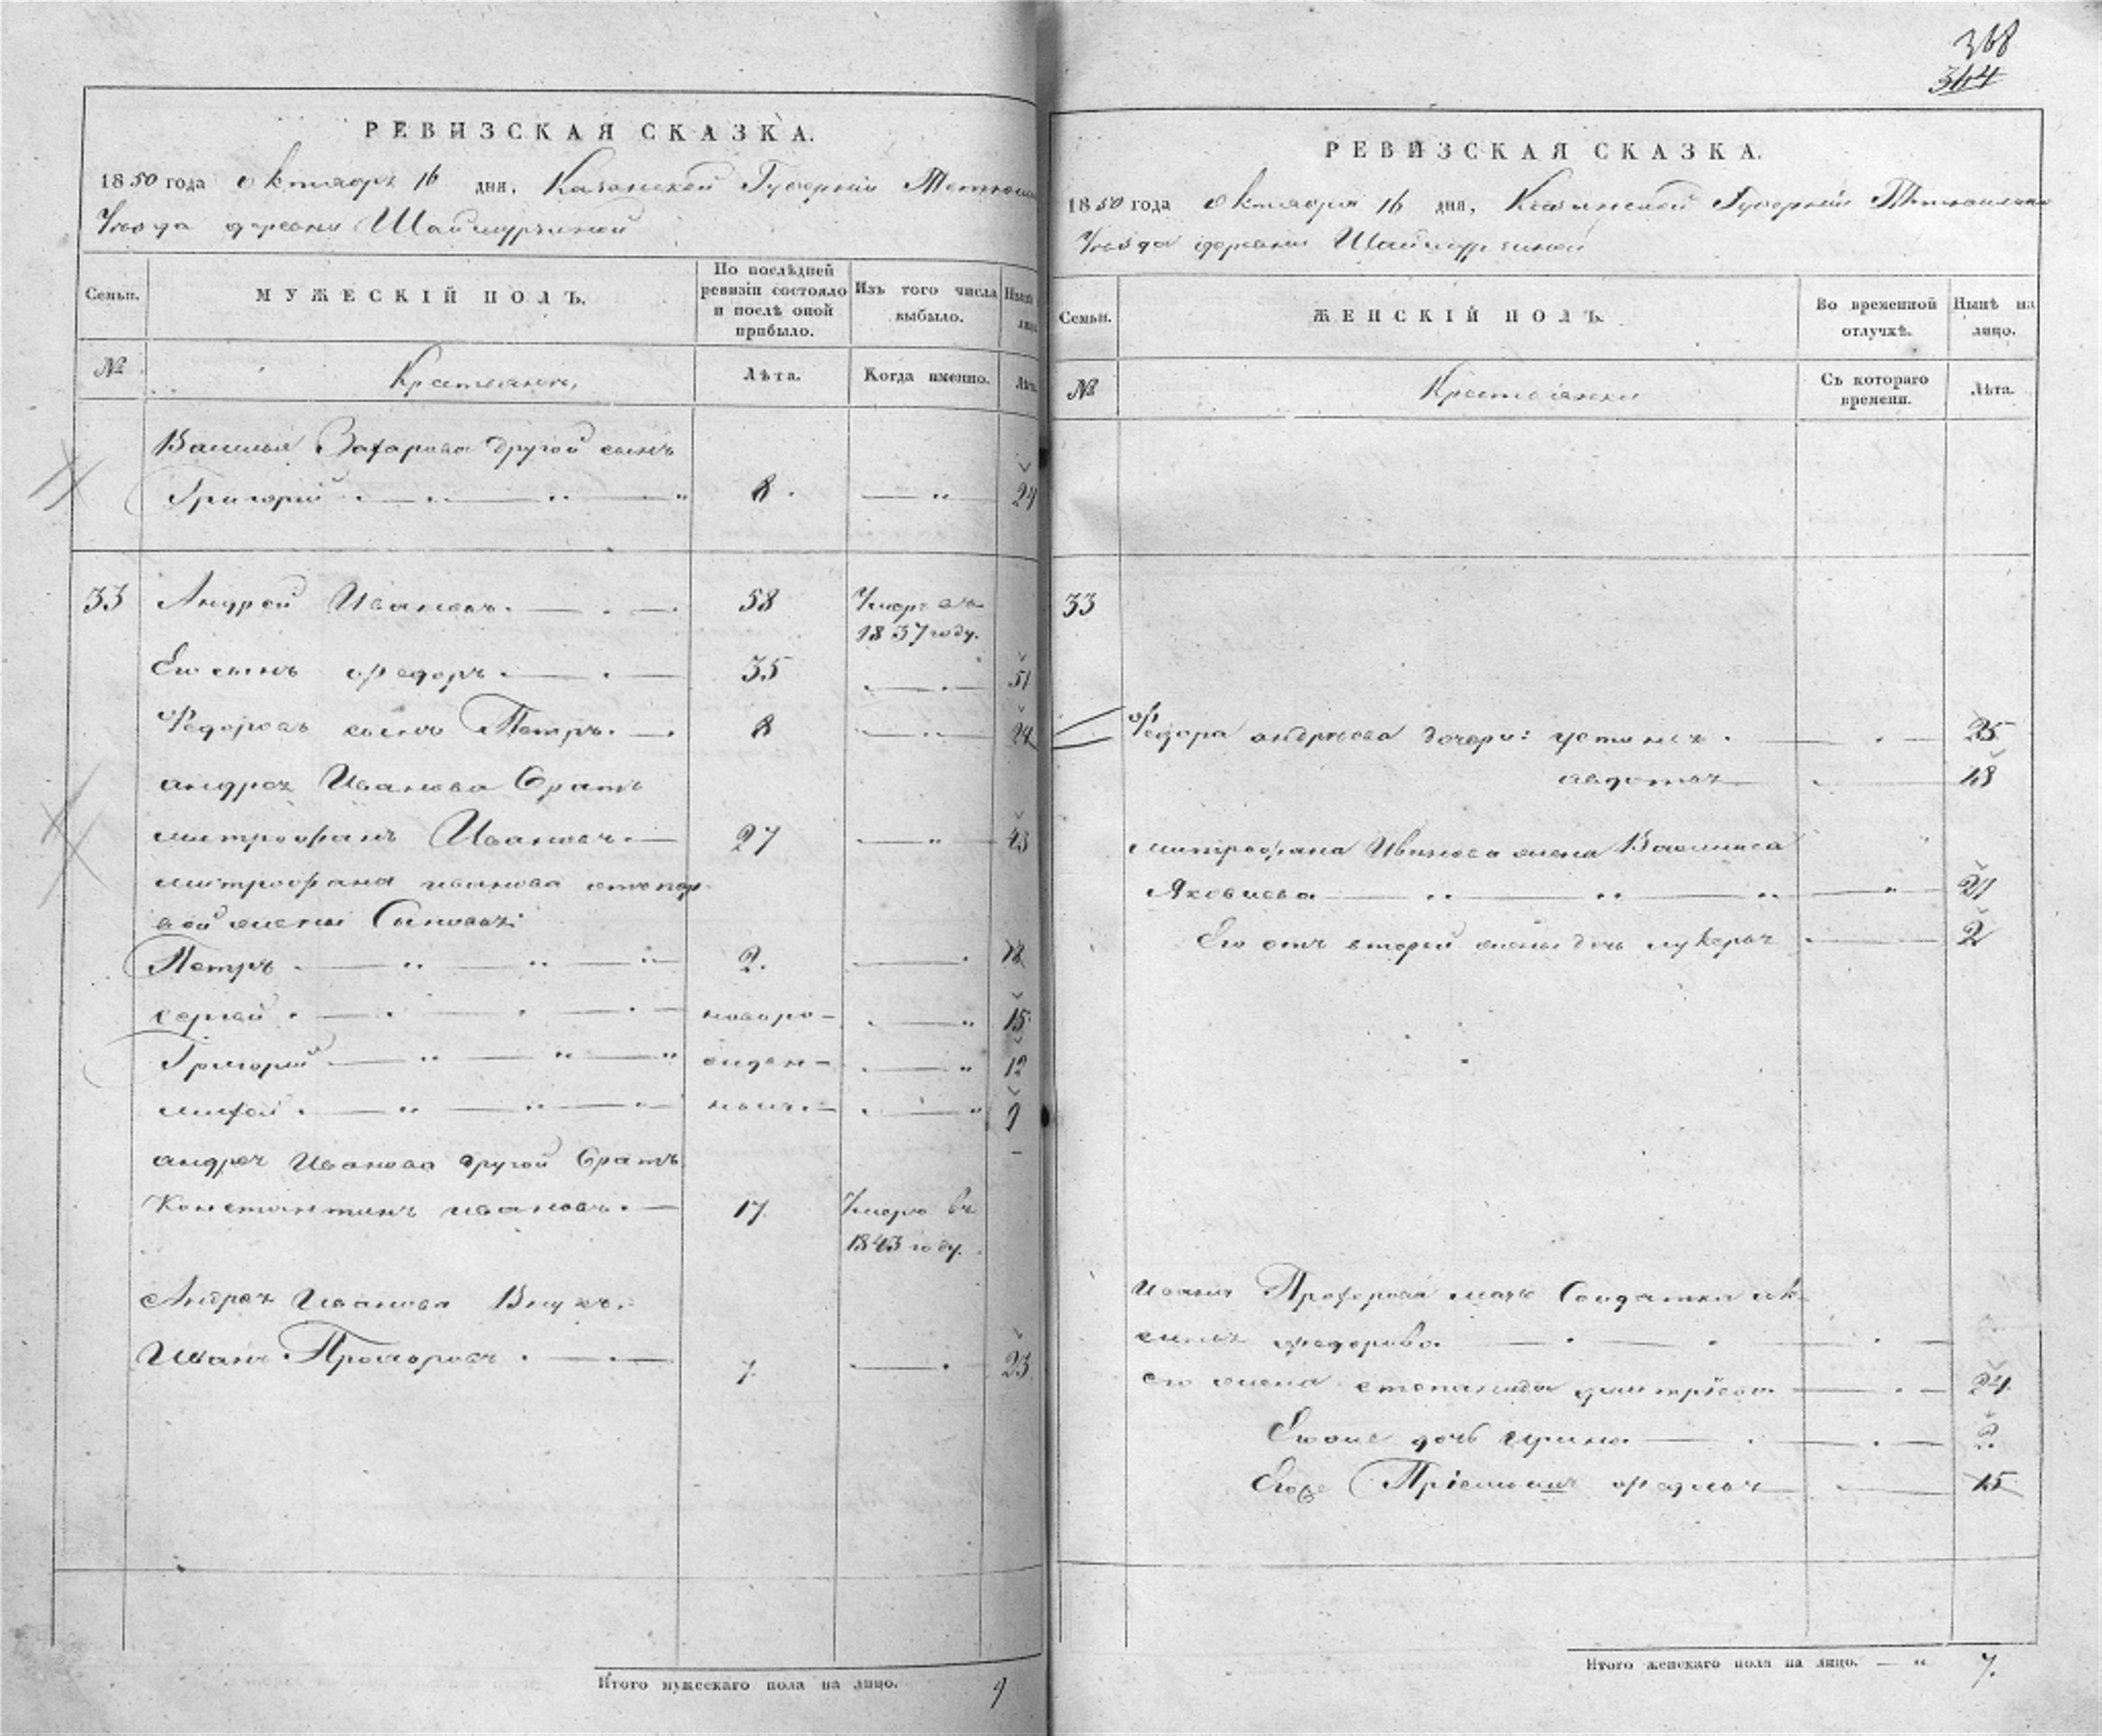 368
364
РЕВИЗСКАЯ СКАЗКА.
1850 года Октября 16 дня, Казанской Губерніи
Уезда деревни Шаймурзиной
Семьи.
МУЖЕСКІЙ ПОЛЪ.
По послѣдней ревизіи состояло и послѣ оной прибыло.
Изъ того числа выбыло.
№
Крестьяне
Лѣта.
Когда именно.
Василья Захарова другой сынъ
Григорій 8 24
33 Андрей Ивановъ 58 Умеръ въ
1837 году.
Его сынъ Федоръ 35 51
Федоровъ сынъ Петръ 8 24
Андрея Иванова братъ
Митрофанъ Ивановъ 27 43
Митрофана Иванова отъ пер
вой жены Сыновья:
Петръ 2 18
Сергей новоро- 15
Григорий жден- 12
Михей ныя 9
Андрея Иванова другой братъ
Константинъ Ивановъ 17 Умеръ въ
1843 году.
Андрея Иванова Внукъ
Иванъ Прохоровъ 7 23
Итого мужескаго пола на лицо. 9
РЕВИЗСКАЯ СКАЗКА.
1850 года Октября 16 дня, Казанской Губерніи
Уезда деревни Шаймурзиной
Семьи.
ЖЕНСКІЙ ПОЛЪ.
Во временной отлучкѣ.
Нынѣ на лицо.
№
Крестьянки
Съ котораго времени.
Лѣта.
33
Федора Андреева дочери: Устинья 25
Авдотья 18
Митрофана Иванова жена Василиса
Яковлева 27
Его отъ второй жены дочь Лукерья 2
Ивана Прохорова мать Солдатка Ак
синья Федорова
его жена Степанида Дмитріева 24
Егоже дочь Ирина 2
Егоже Пріемышъ 15
Итого женскаго пола на лицо. 7.